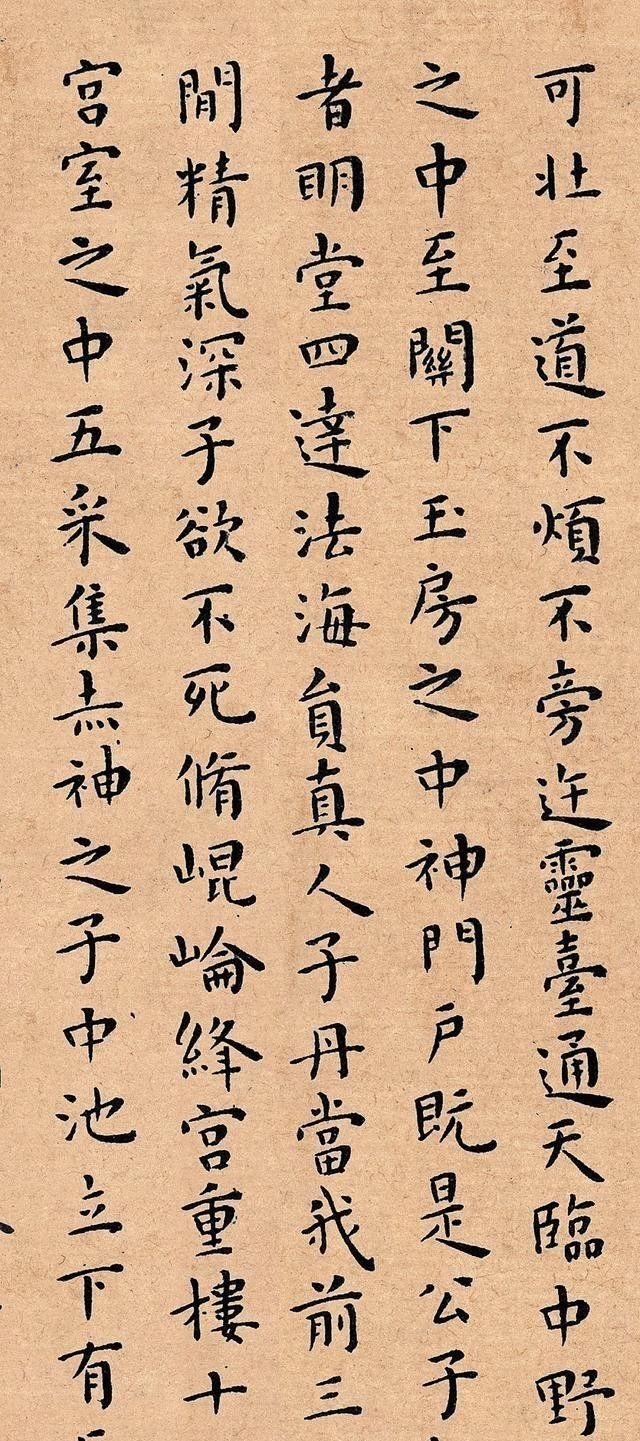 可壯至道不煩不旁迕靈臺通天臨中野
之中至關下玉房之中神門戶既是公子
者明堂四達法海員真人子丹當我前三
間精氣深子欲不死脩崐崘絳宮重樓十
宮室之中五采集赤神之子中池立下有